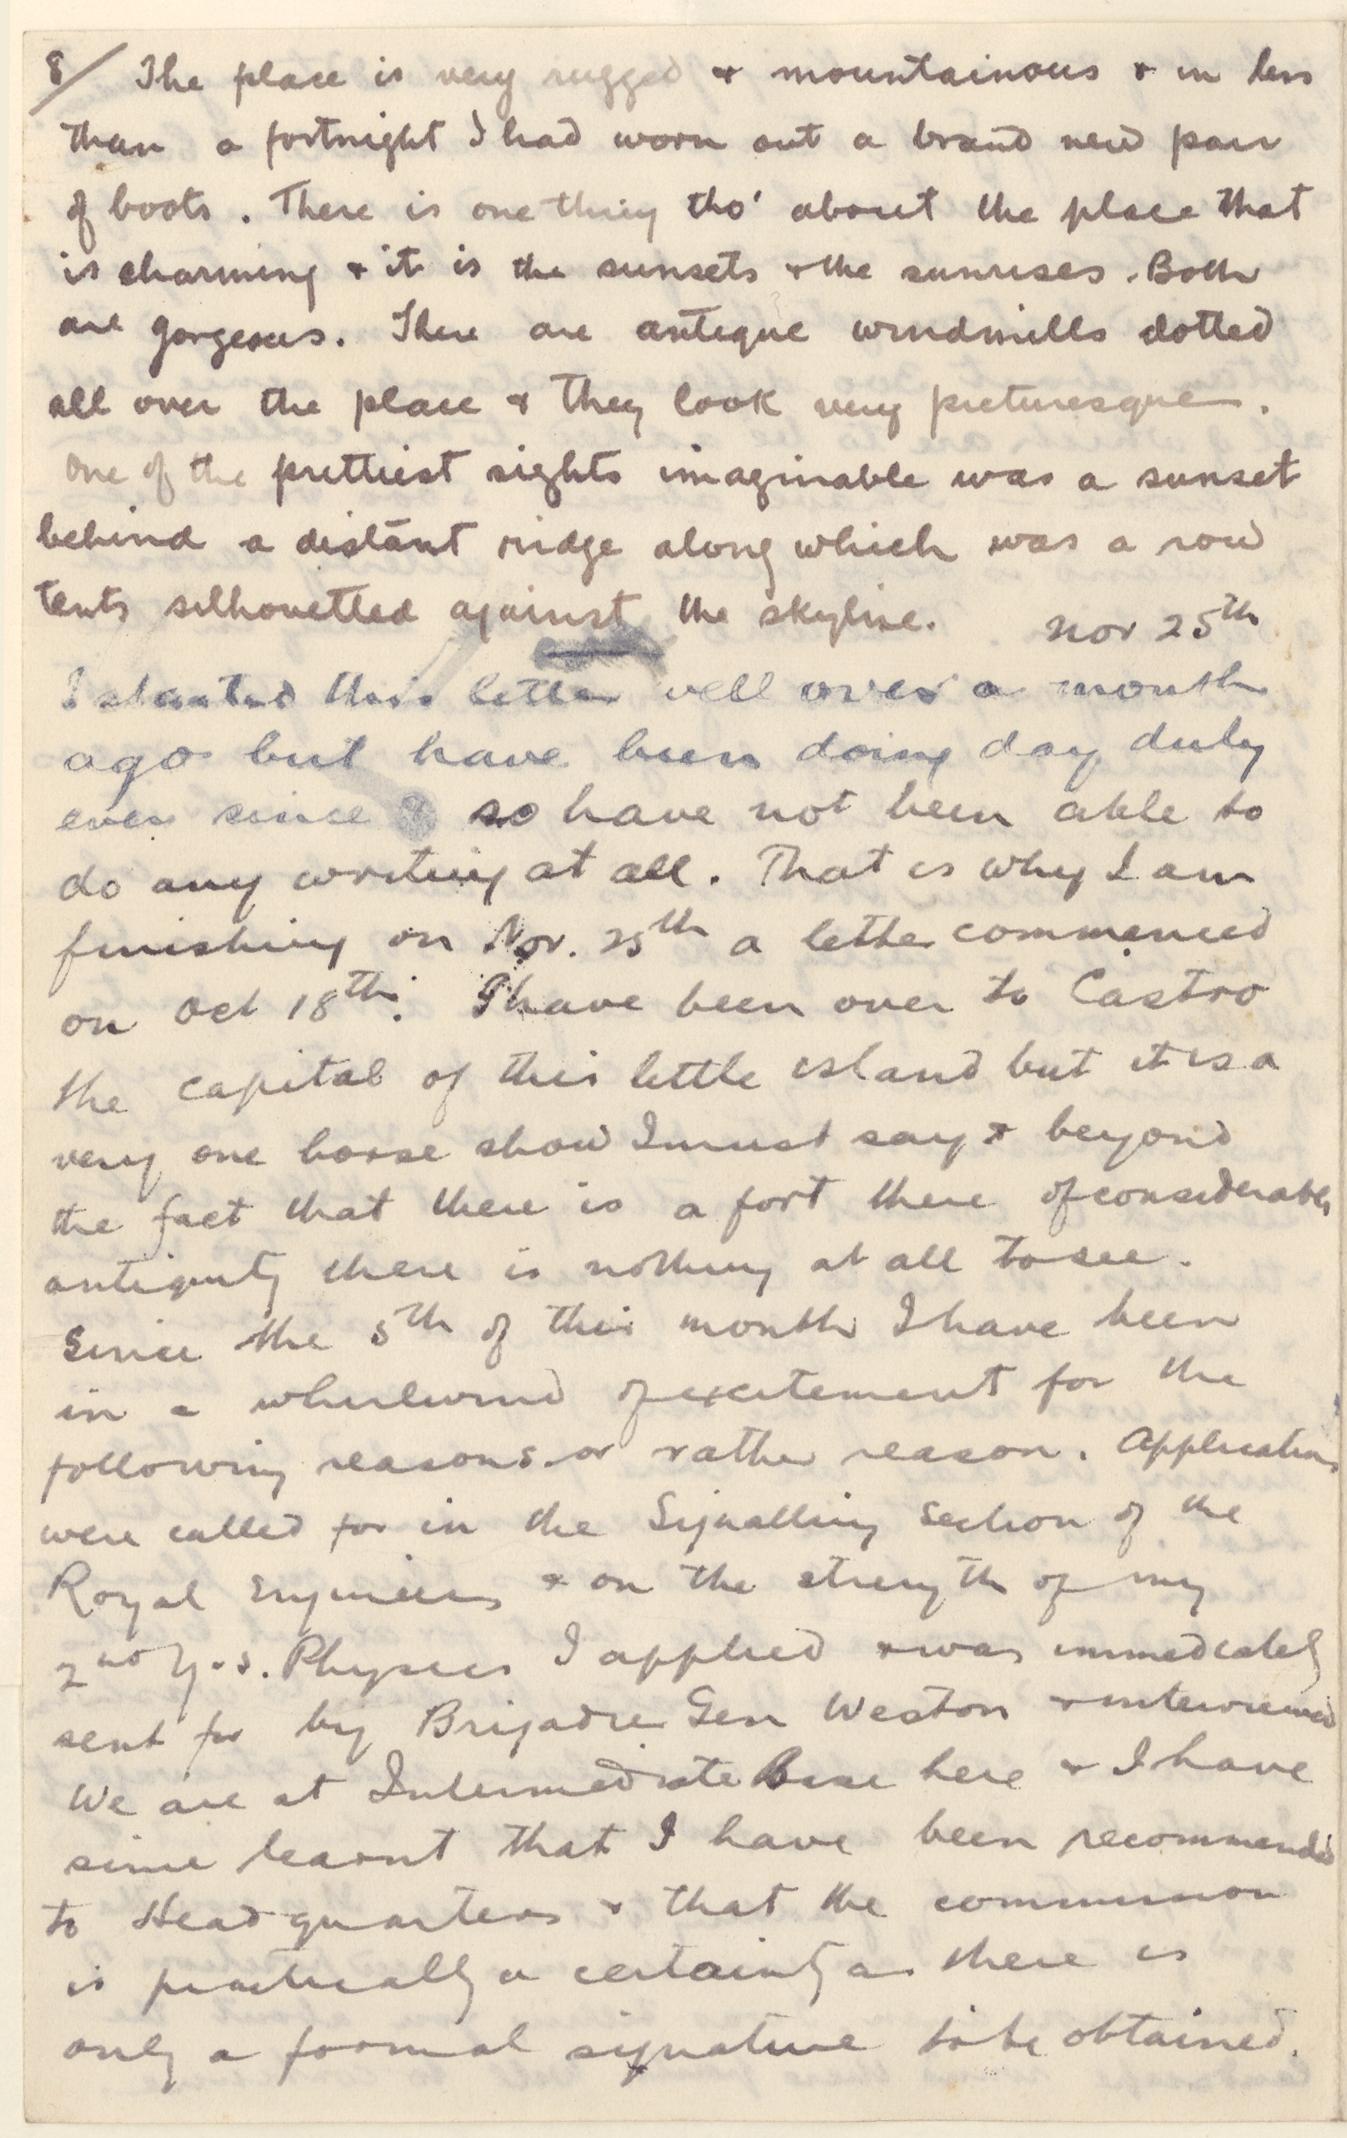 8/ The place is very rugged & mountainous & in less
than a fortnight I had worn out a brand new pair
of boots. There is one thing tho' about the place that
is charming & it is the sunsets & the sunrises. Both
are gorgeous. There are antique windmills dotted
all over the place & they look very picturesque.
One of the prettiest sights imaginable was a sunset
behind a distant ridge along which was a row
tents silhouetted against the skyline. Nov 25th
I started this letter well over a month
ago but have been doing day duty
ever since so have not been able to
do any writing at all. That is why I am
finishing on Nov. 25th a letter commenced
on Oct 18th. I have been over to Castro
the capital of this little island but it is a
very one horse show I must say & beyond
the fact that there is a fort there of considerable
antiquity there is nothing at all to see.
Since the 5th of this month I have been
in a whirlwind of excitement for the
following reasons or rather reason. Applications
were called for in the Signalling Section of the
Royal Engineers & on the strength of my
2nd Y.S. Physics I applied & was immediately
sent for by Brigadier Gen Weston & interviewed
We are at Intermediate Base here & I have
since learnt that I have been recommended
to Headquarters & that the commission
is practically a certainty as there is
only a formal signature to be obtained.